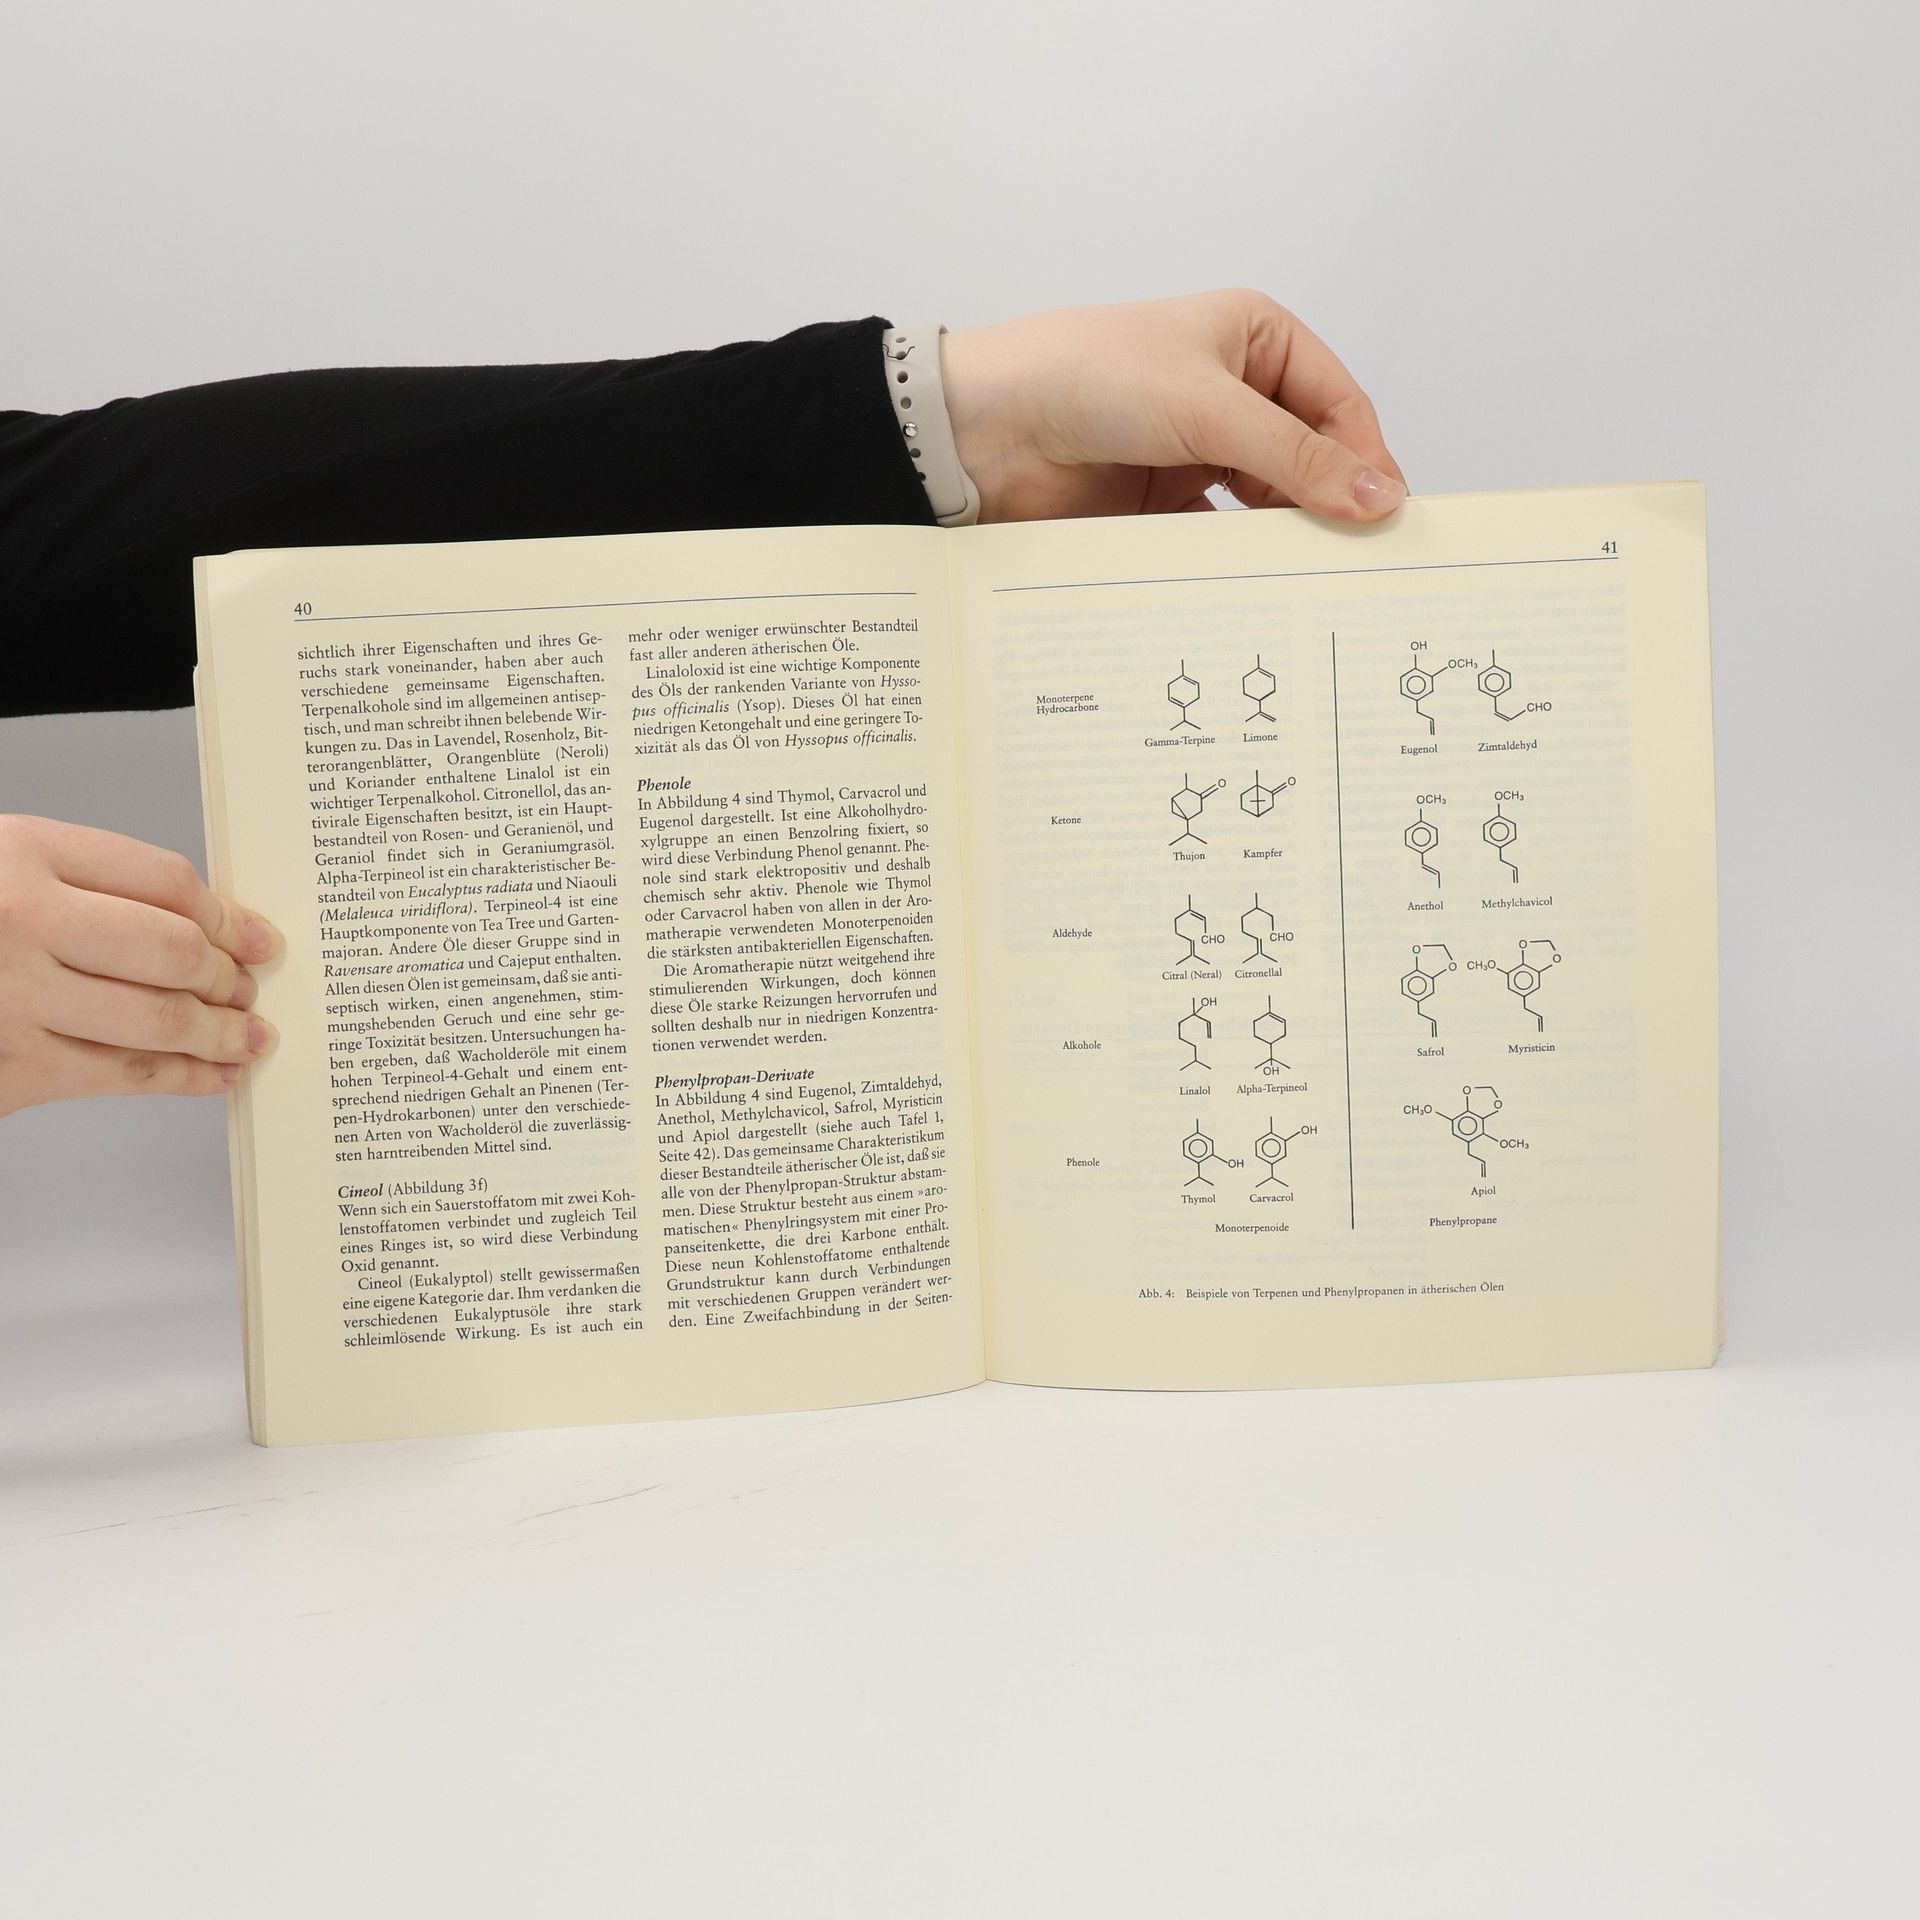 40
sichtlich ihrer Eigenschaften und ihres Ge-
ruchs stark voneinander, haben aber auch
verschiedene gemeinsame Eigenschaften.
Terpenalkohole sind im allgemeinen antisep-
tisch, und man schreibt ihnen belebende Wir-
kungen zu. Das in Lavendel, Rosenholz, Bit-
terorangenblätter, Orangenblüte (Neroli)
und Koriander enthaltene Linalol ist ein
wichtiger Terpenalkohol. Citronellol, das an-
tivirale Eigenschaften besitzt, ist ein Haupt-
bestandteil von Rosen- und Geranienöl, und
Geraniol findet sich in Geraniumgrasöl.
Alpha-Terpineol ist ein charakteristischer Be-
standteil von Eucalyptus radiata und Niaouli
(Melaleuca viridiflora). Terpineol-4 ist eine
Hauptkomponente von Tea Tree und Garten-
majoran. Andere Öle dieser Gruppe sind in
Ravensare aromatica und Cajeput enthalten.
Allen diesen Ölen ist gemeinsam, daß sie anti-
septisch wirken, einen angenehmen, stim-
mungshebenden Geruch und eine sehr ge-
ringe Toxizität besitzen. Untersuchungen ha-
ben ergeben, daß Wacholderöle mit einem
hohen Terpineol-4-Gehalt und einem ent-
sprechend niedrigen Gehalt an Pinenen (Ter-
pen-Hydrokarbonen) unter den verschiede-
nen Arten von Wacholderöl die zuverlässig-
sten harntreibenden Mittel sind.
Cineol (Abbildung 3f)
Wenn sich ein Sauerstoffatom mit zwei Koh-
lenstoffatomen verbindet und zugleich Teil
eines Ringes ist, so wird diese Verbindung
Oxid genannt.
Cineol (Eukalyptol) stellt gewissermaßen
eine eigene Kategorie dar. Ihm verdanken die
verschiedenen Eukalyptusöle ihre stark
schleimlösende Wirkung. Es ist auch ein
mehr oder weniger erwünschter Bestandteil
fast aller anderen ätherischen Öle.
Linaloloxid ist eine wichtige Komponente
des Öls der rankenden Variante von Hysso-
pus officinalis (Ysop). Dieses Öl hat einen
niedrigen Ketongehalt und eine geringere To-
xizität als das Öl von Hyssopus officinalis.
Phenole
In Abbildung 4 sind Thymol, Carvacrol und
Eugenol dargestellt. Ist eine Alkoholhydro-
xylgruppe an einen Benzolring fixiert, so
wird diese Verbindung Phenol genannt. Phe-
nole sind stark elektropositiv und deshalb
chemisch sehr aktiv. Phenole wie Thymol
oder Carvacrol haben von allen in der Aro-
matherapie verwendeten Monoterpenoiden
die stärksten antibakteriellen Eigenschaften.
Die Aromatherapie nützt weitgehend ihre
stimulierenden Wirkungen, doch können
diese Öle starke Reizungen hervorrufen und
sollten deshalb nur in niedrigen Konzentra-
tionen verwendet werden.
Phenylpropan-Derivate
In Abbildung 4 sind Eugenol, Zimtaldehyd,
Anethol, Methylchavicol, Safrol, Myristicin
und Apiol dargestellt (siehe auch Tafel 1,
Seite 42). Das gemeinsame Charakteristikum
dieser Bestandteile ätherischer Öle ist, daß sie
alle von der Phenylpropan-Struktur abstam-
men. Diese Struktur besteht aus einem »aro-
matischen« Phenylringsystem mit einer Pro-
panseitenkette, die drei Karbone enthält.
Diese neun Kohlenstoffatome enthaltende
Grundstruktur kann durch Verbindungen
mit verschiedenen Gruppen verändert wer-
den. Eine Zweifachbindung in der Seiten-
41
Monoterpene
Hydrocarbone
Gamma-Terpine Limone
Ketone
O O
Thujon Kampfer
Aldehyde
CHO CHO
Citral (Neral) Citronellal
Alkohole
OH
OH
Linalol Alpha-Terpineol
Phenole
OH OH
Thymol Carvacrol
Monoterpenoide
OH
OCH₃
CHO
Eugenol Zimtaldehyd
OCH₃ OCH₃
Anethol Methylchavicol
O O
O CH₃O O
Safrol Myristicin
O
CH₃O O
OCH₃
Apiol
Phenylpropane
Abb. 4: Beispiele von Terpenen und Phenylpropanen in ätherischen Ölen